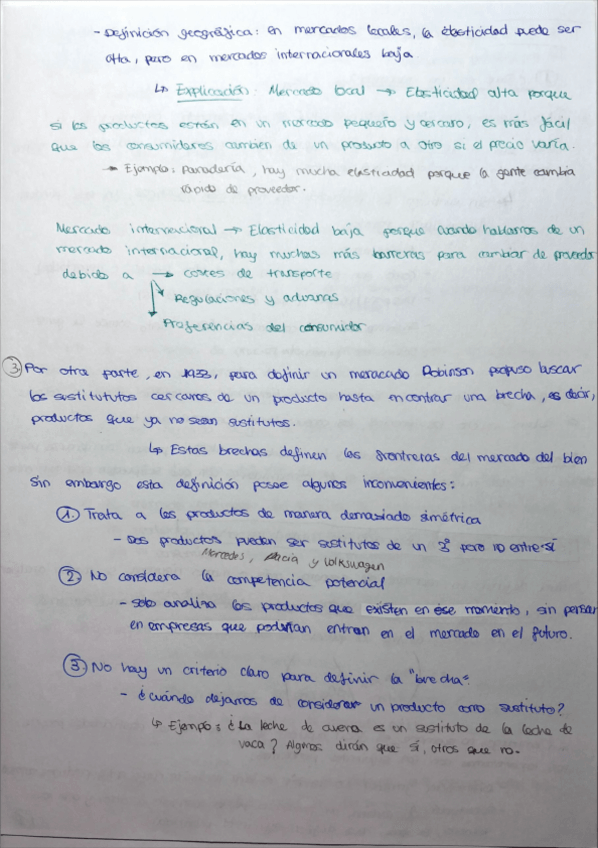 - Definición geográfica: en mercados locales, la elasticidad puede ser
alta, pero en mercados internacionales baja
↳ Explicación: Mercado local → Elasticidad alta porque
si los productos están en un mercado pequeño y cercano, es más fácil
que los consumidores cambien de un producto a otro si el precio varía.
→ Ejemplo: Panadería, hay mucha elasticidad porque la gente cambia
rápido de proveedor.
Mercado internacional → Elasticidad baja porque cuando hablamos de un
mercado internacional, hay muchas más barreras para cambiar de proveedor
debido a → costes de transporte
Regulaciones y aduanas
Preferencias del consumidor
③ Por otra parte, en 1933, para definir un meracado Robinson propuso buscar
los sustitututos cercanos de un producto hasta encontrar una brecha, es decir,
productos que ya no sean sustitutos.
↳ Estas brechas definen las fronteras del mercado del bien
sin embargo esta definición posee algunos inconvenientes:
①. Trata a los productos de manera demasiado simétrica
- Dos productos pueden ser sustitutos de un 3º pero no entre sí
Mercedes, Dacia y Volkswagen
②. No considera la competencia potencial
- solo analiza los productos que existen en ese momento, sin pensar
en empresas que podrían entrar en el mercado en el futuro.
③. No hay un criterio claro para definir la "brecha".
- ¿cuándo dejamos de considerar un producto como sustituto?
↳ Ejemplo: ¿La leche de avena es un sustituto de la leche de
vaca? Algunos dirán que sí, otros que no.